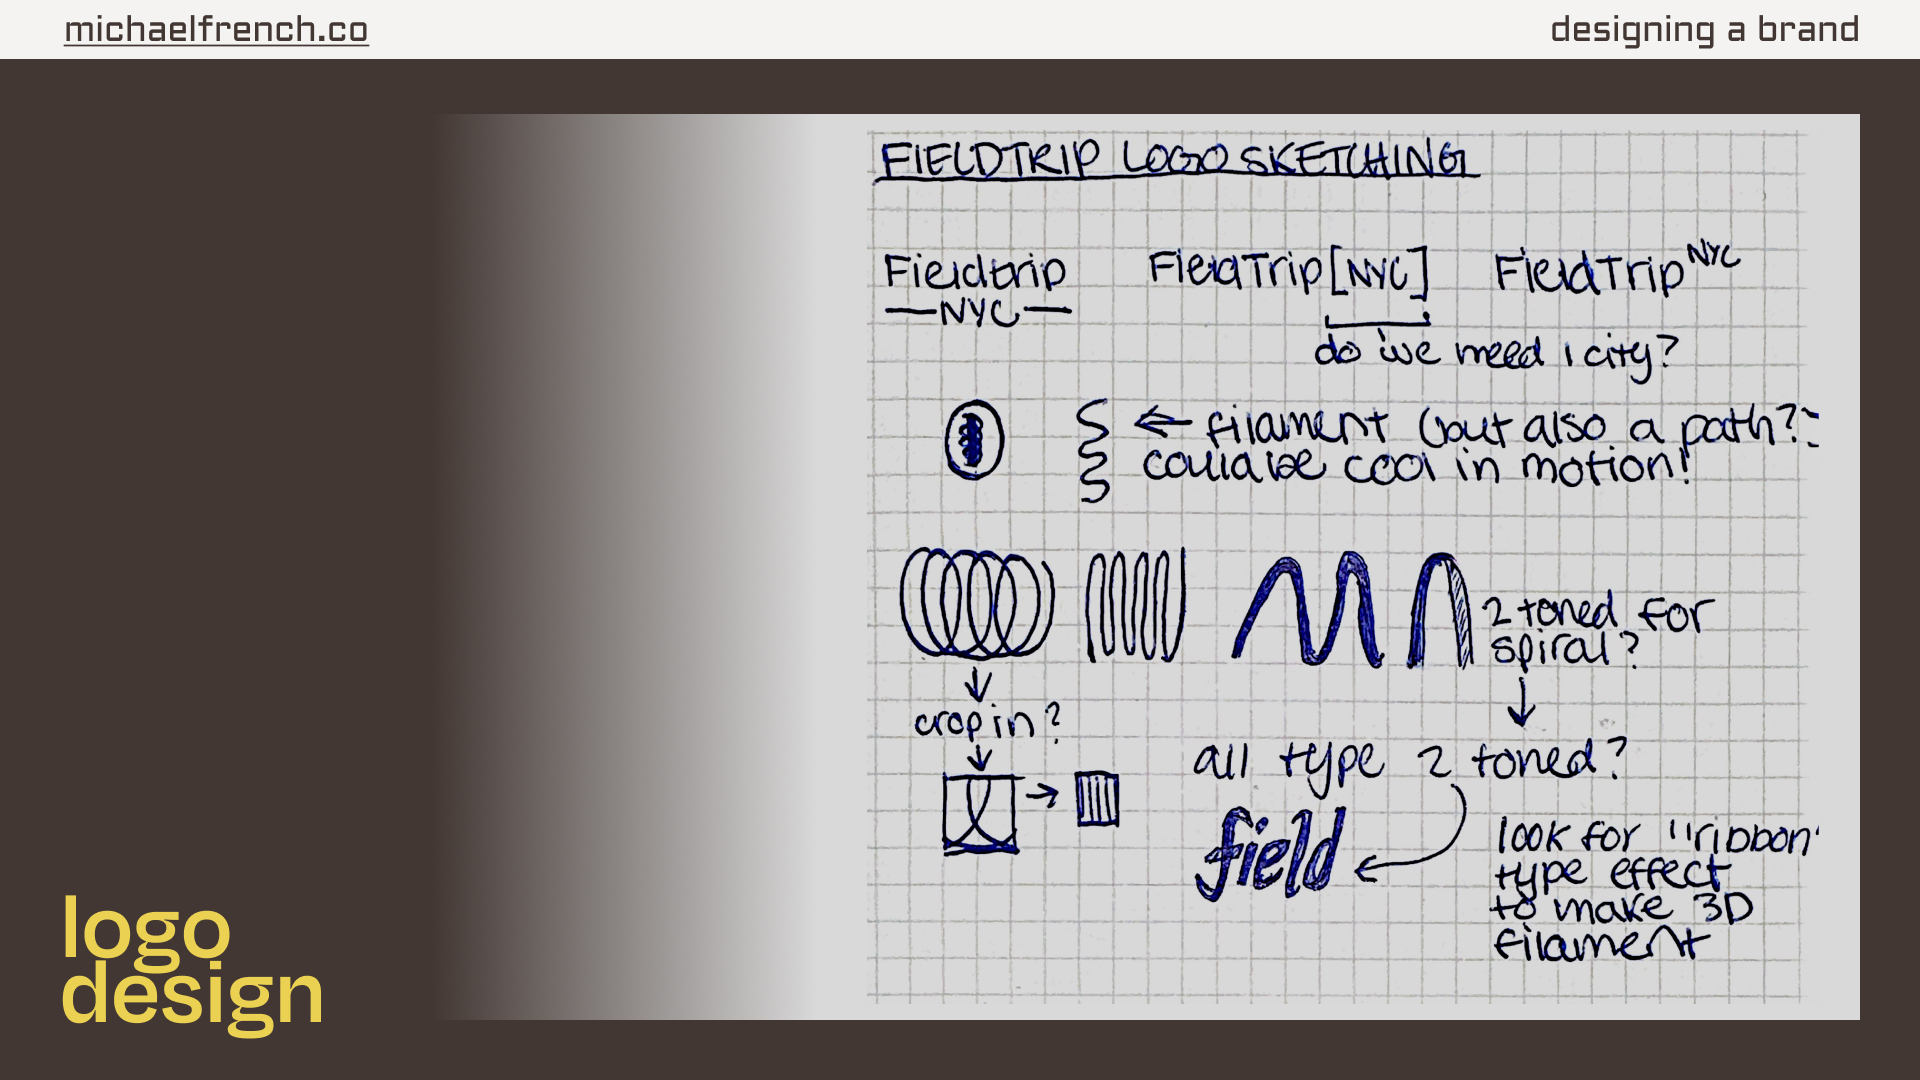 michaelfrench.co
designing a brand
FIELDTRIP LOGO SKETCHING
Fieldtrip
—NYC—
FieldTrip[NYC]
FieldTrip NYC
do we need 1 city?
← filament (but also a path?)
could be cool in motion!
2 toned for
spiral?
crop in?
all type 2 toned?
field
look for "ribbon"
type effect
to make 3D
filament
logo
design